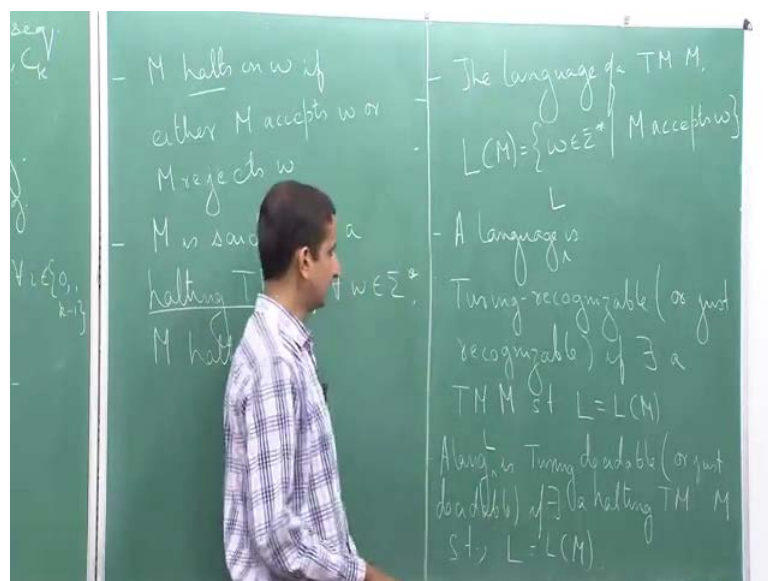 seq.
C_k
∀ i ∈ {0,
k-1}
- M halts on w if
either M accepts w or
M rejects w
- M is said a
halting T ∀ w ∈ Σ*,
M halt
- The language of a TM M.
L(M) = { w ∈ Σ* | M accepts w }
- A language L is
Turing-recognizable (or just
recognizable) if ∃ a
TM M st L = L(M)
- A lang L is Turing decidable (or just
decidable) if ∃ a halting TM M
st, L = L(M)